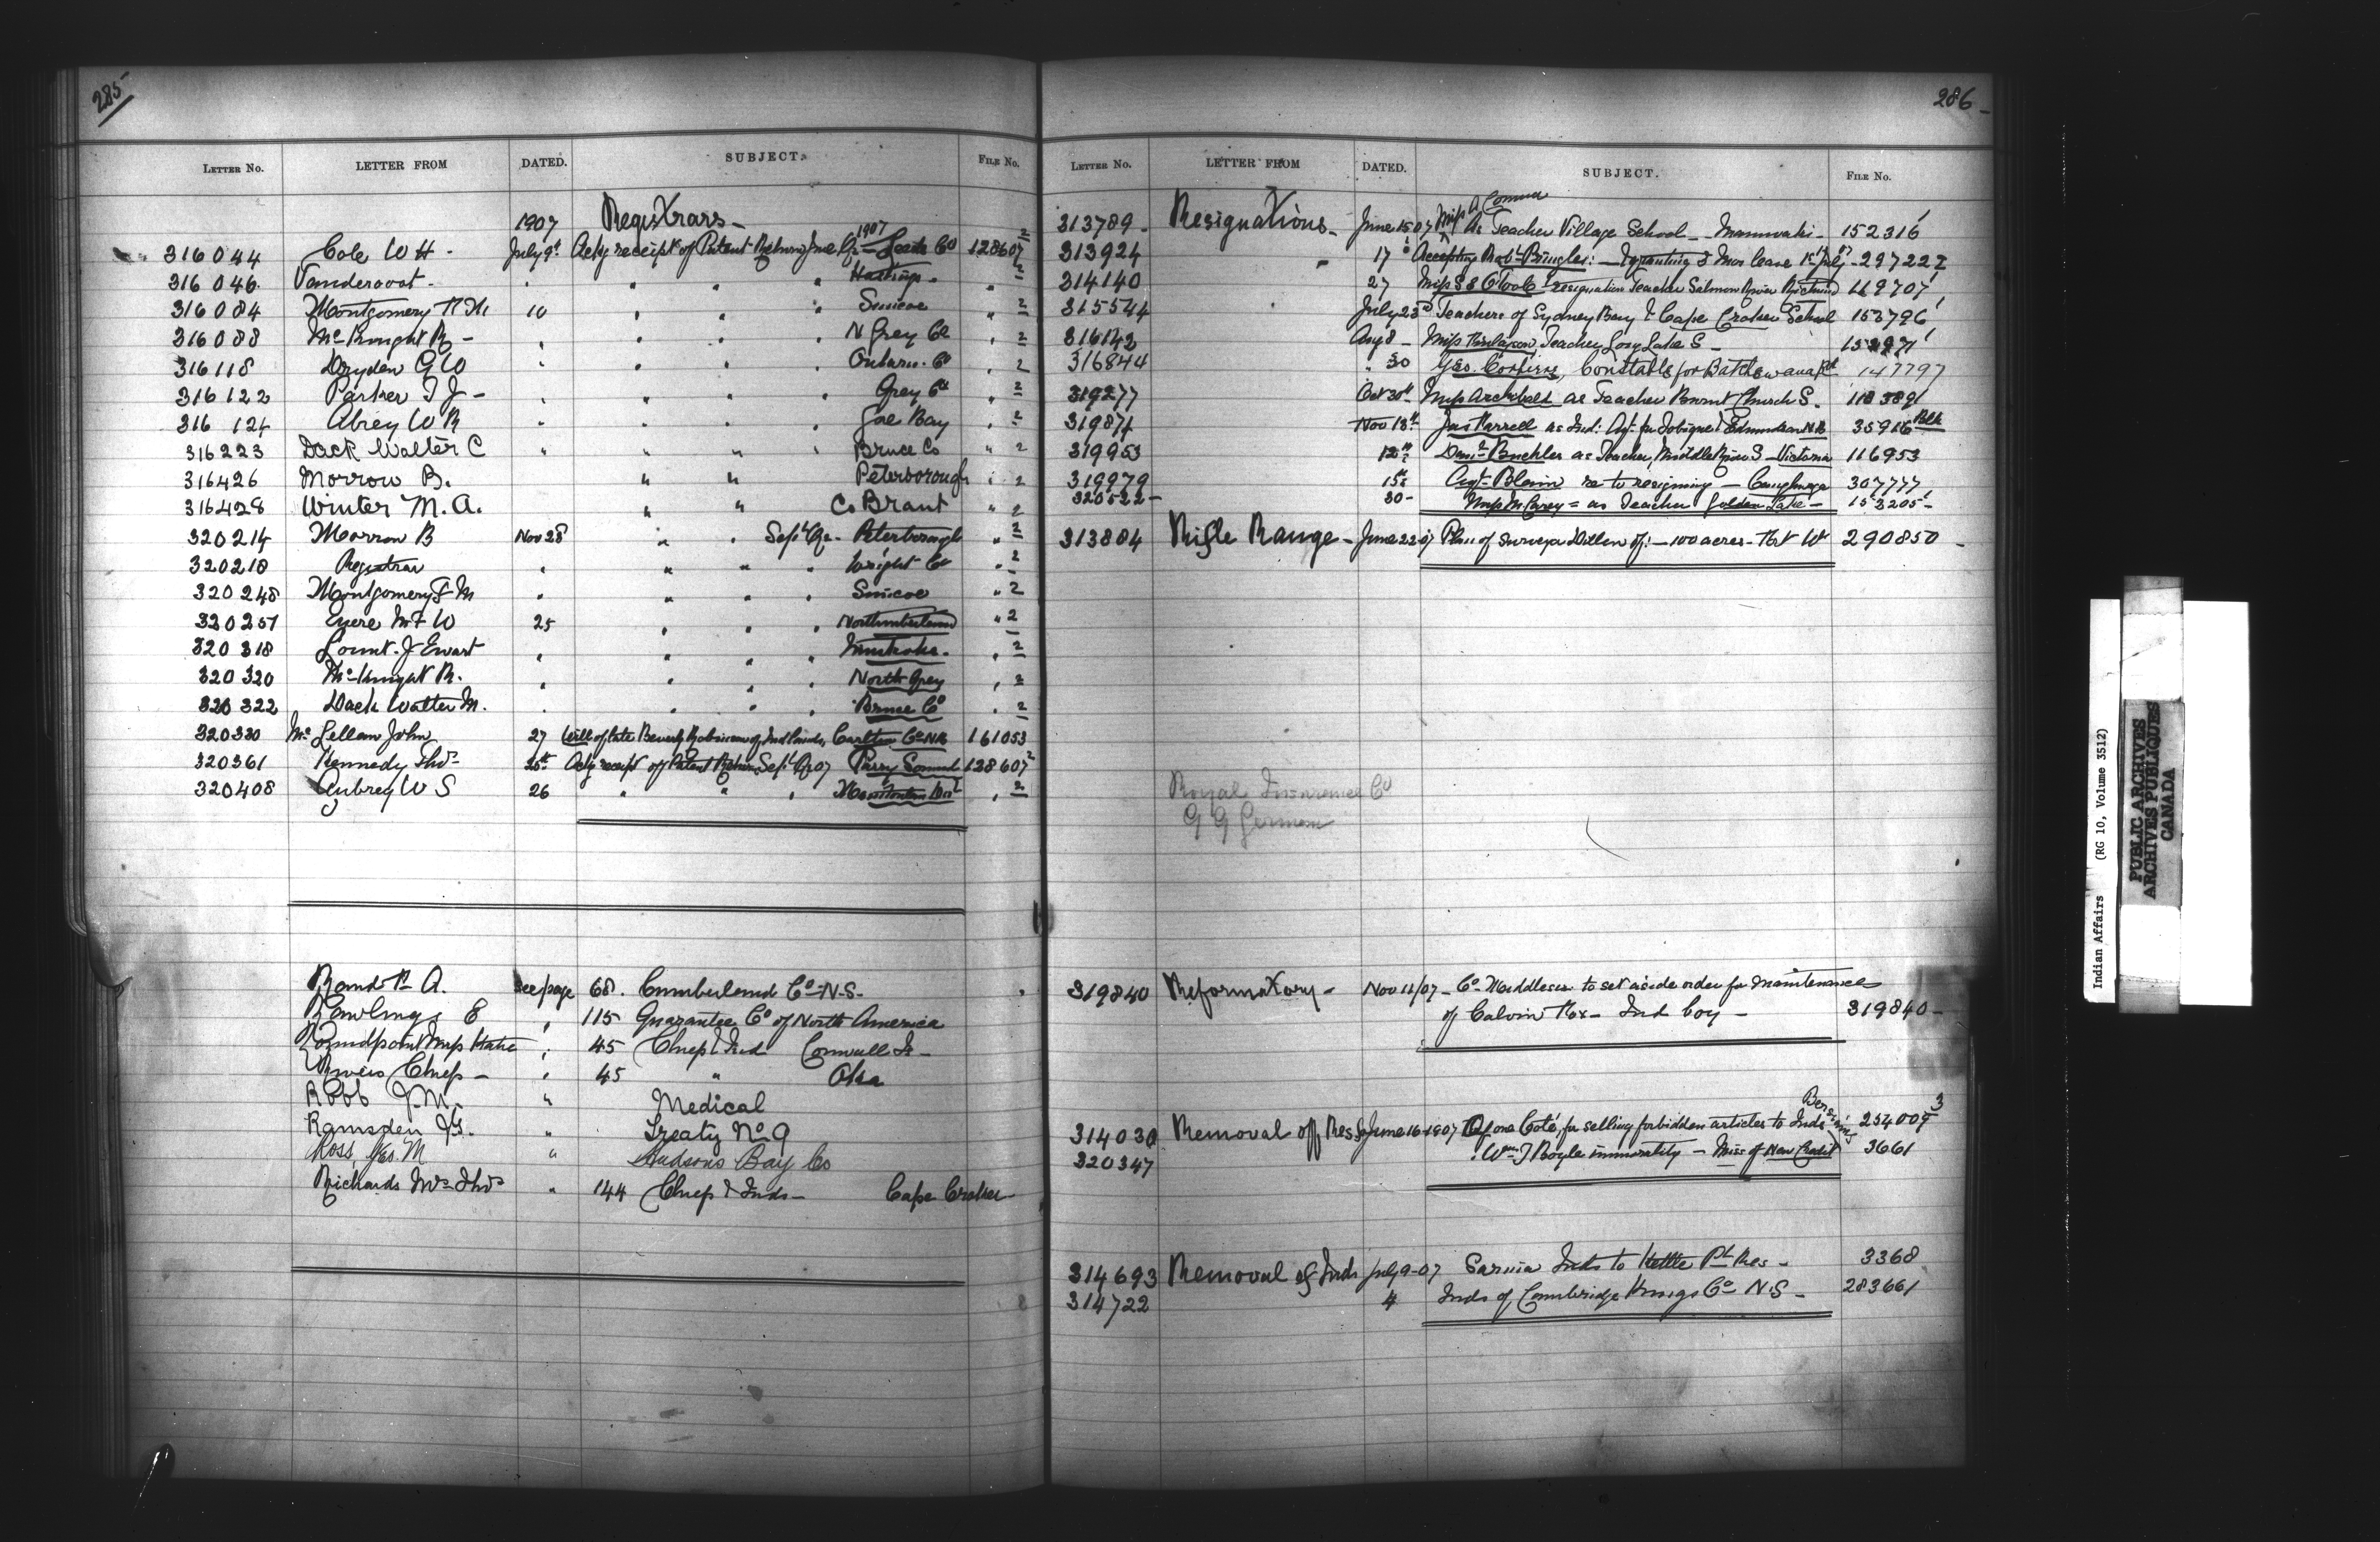 285
LETTER NO. LETTER FROM DATED. SUBJECT. FILE No.
1907 Registrars -
316044 Cole W H - July 9th Ackg receipt of Patent Return June Qr 1907 - Leeds Co 128607 2
316046 Vandervoort - " " " " Hastings - " 2
316084 Montgomery 10 " " " Simcoe " 2
316088 McKnight R - " " " " N Grey Co " 2
316118 Dryden G W " " " Ontario Co " 2
316122 Parker T J - " " " " Grey Co " 2
316124 Abrey W R " " " " Gore Bay " 2
316223 Dack Walter C " " " " Bruce Co " 2
316426 Morrow B. " " Peterborough " 2
316428 Winter M. A. " " Co Brant " 2
320214 Morrow B Nov 28 " " Sept Qr - Peterborough " 2
320218 Registrar " " " " Wright Co " 2
320248 Montgomery F M " " " " Simcoe " 2
320257 W 25 " " " Northumberland " 2
320318 Lount J Ewart " " " " Muskoka - " 2
320320 McKnight R. " " " " North Grey " 2
320322 Dack Walter M. " " " " Bruce Co " 2
320330 McLellan John 27 Will of late Beverly Robinson of Ind lands, Carlton Co NB 161053
320361 Kennedy Thos 28th Ackg receipt of Patent Return Sept Qr 07 Parry Sound 128607 2
320408 Aubrey W S 26 " " " Manitoulin Dist " 2
Rand A. See page 68. Cumberland Co - N.S.
Rawlings E " 115 Guarantee Co of North America
Roundpoint Miss Katie " 45 Chiefs & Ind Cornwall Is -
Chief - " 45 " Oka
Robb J. M. " Medical
Ramsden J.G. " Treaty No 9
Ross, Jas. M " Hudsons Bay Co
Richards Mrs Thos " 144 Chiefs & Inds - Cape Croker
286 -
LETTER NO. LETTER FROM DATED. SUBJECT. FILE No.
313789 - Resignations - June 15 07 Miss A Connor As Teacher Village School - Maniwaki - 152316
313924 " 17 Accepting Robt Pringles: - Granting 3 Mos leave 1st July 07 - 297222
314140 27 Miss S E O'Toole - resignation Teacher Salmon River 119707
315544 July 23rd Teachers of Sydney Bay & Cape Croker School 153796
316142 Aug 8 - Miss Teacher Long Lake S -
316844 " 30 Geo. Constable for Batchewana Rd 147797
319277 Oct 30th Miss Archibald as Teacher Church S.
319874 Nov 18th Jas Farrell as Ind: Agt for Tobique & Edmundston NB 35916 Blk
319953 12th Danl Buchler as Teacher, Middle River S - Victoria 116953
319979 15th Agt - Blain re to resigning - Caughnaga 307777
320522 - 30 - Miss M Carey = as Teacher Golden Lake - 153205 -
313804 Rifle Range - June 22 07 Plan of survey Dillon of: - 100 acres - Ft W 290850 -
Royal Insurance Co
G G German
319840 Reformatory - Nov 11/07 - Co Middlesex to set aside order for maintenance
of Calvin - Ind boy - 319840 -
314030 Removal off Res June 16-1907 Of one Coté, for selling forbidden articles to Inds 254009 3
320347 " Wm J Boyle immorality - Miss of New Credit 3661
314693 Removal of Inds July 9-07 Sarnia Inds to Kettle Pt Res - 3368
314722 4 Inds of Cambridge Kings Co N.S - 283661
Indian Affairs (RG 10, Volume 3512)
PUBLIC ARCHIVES
ARCHIVES PUBLIQUES
CANADA